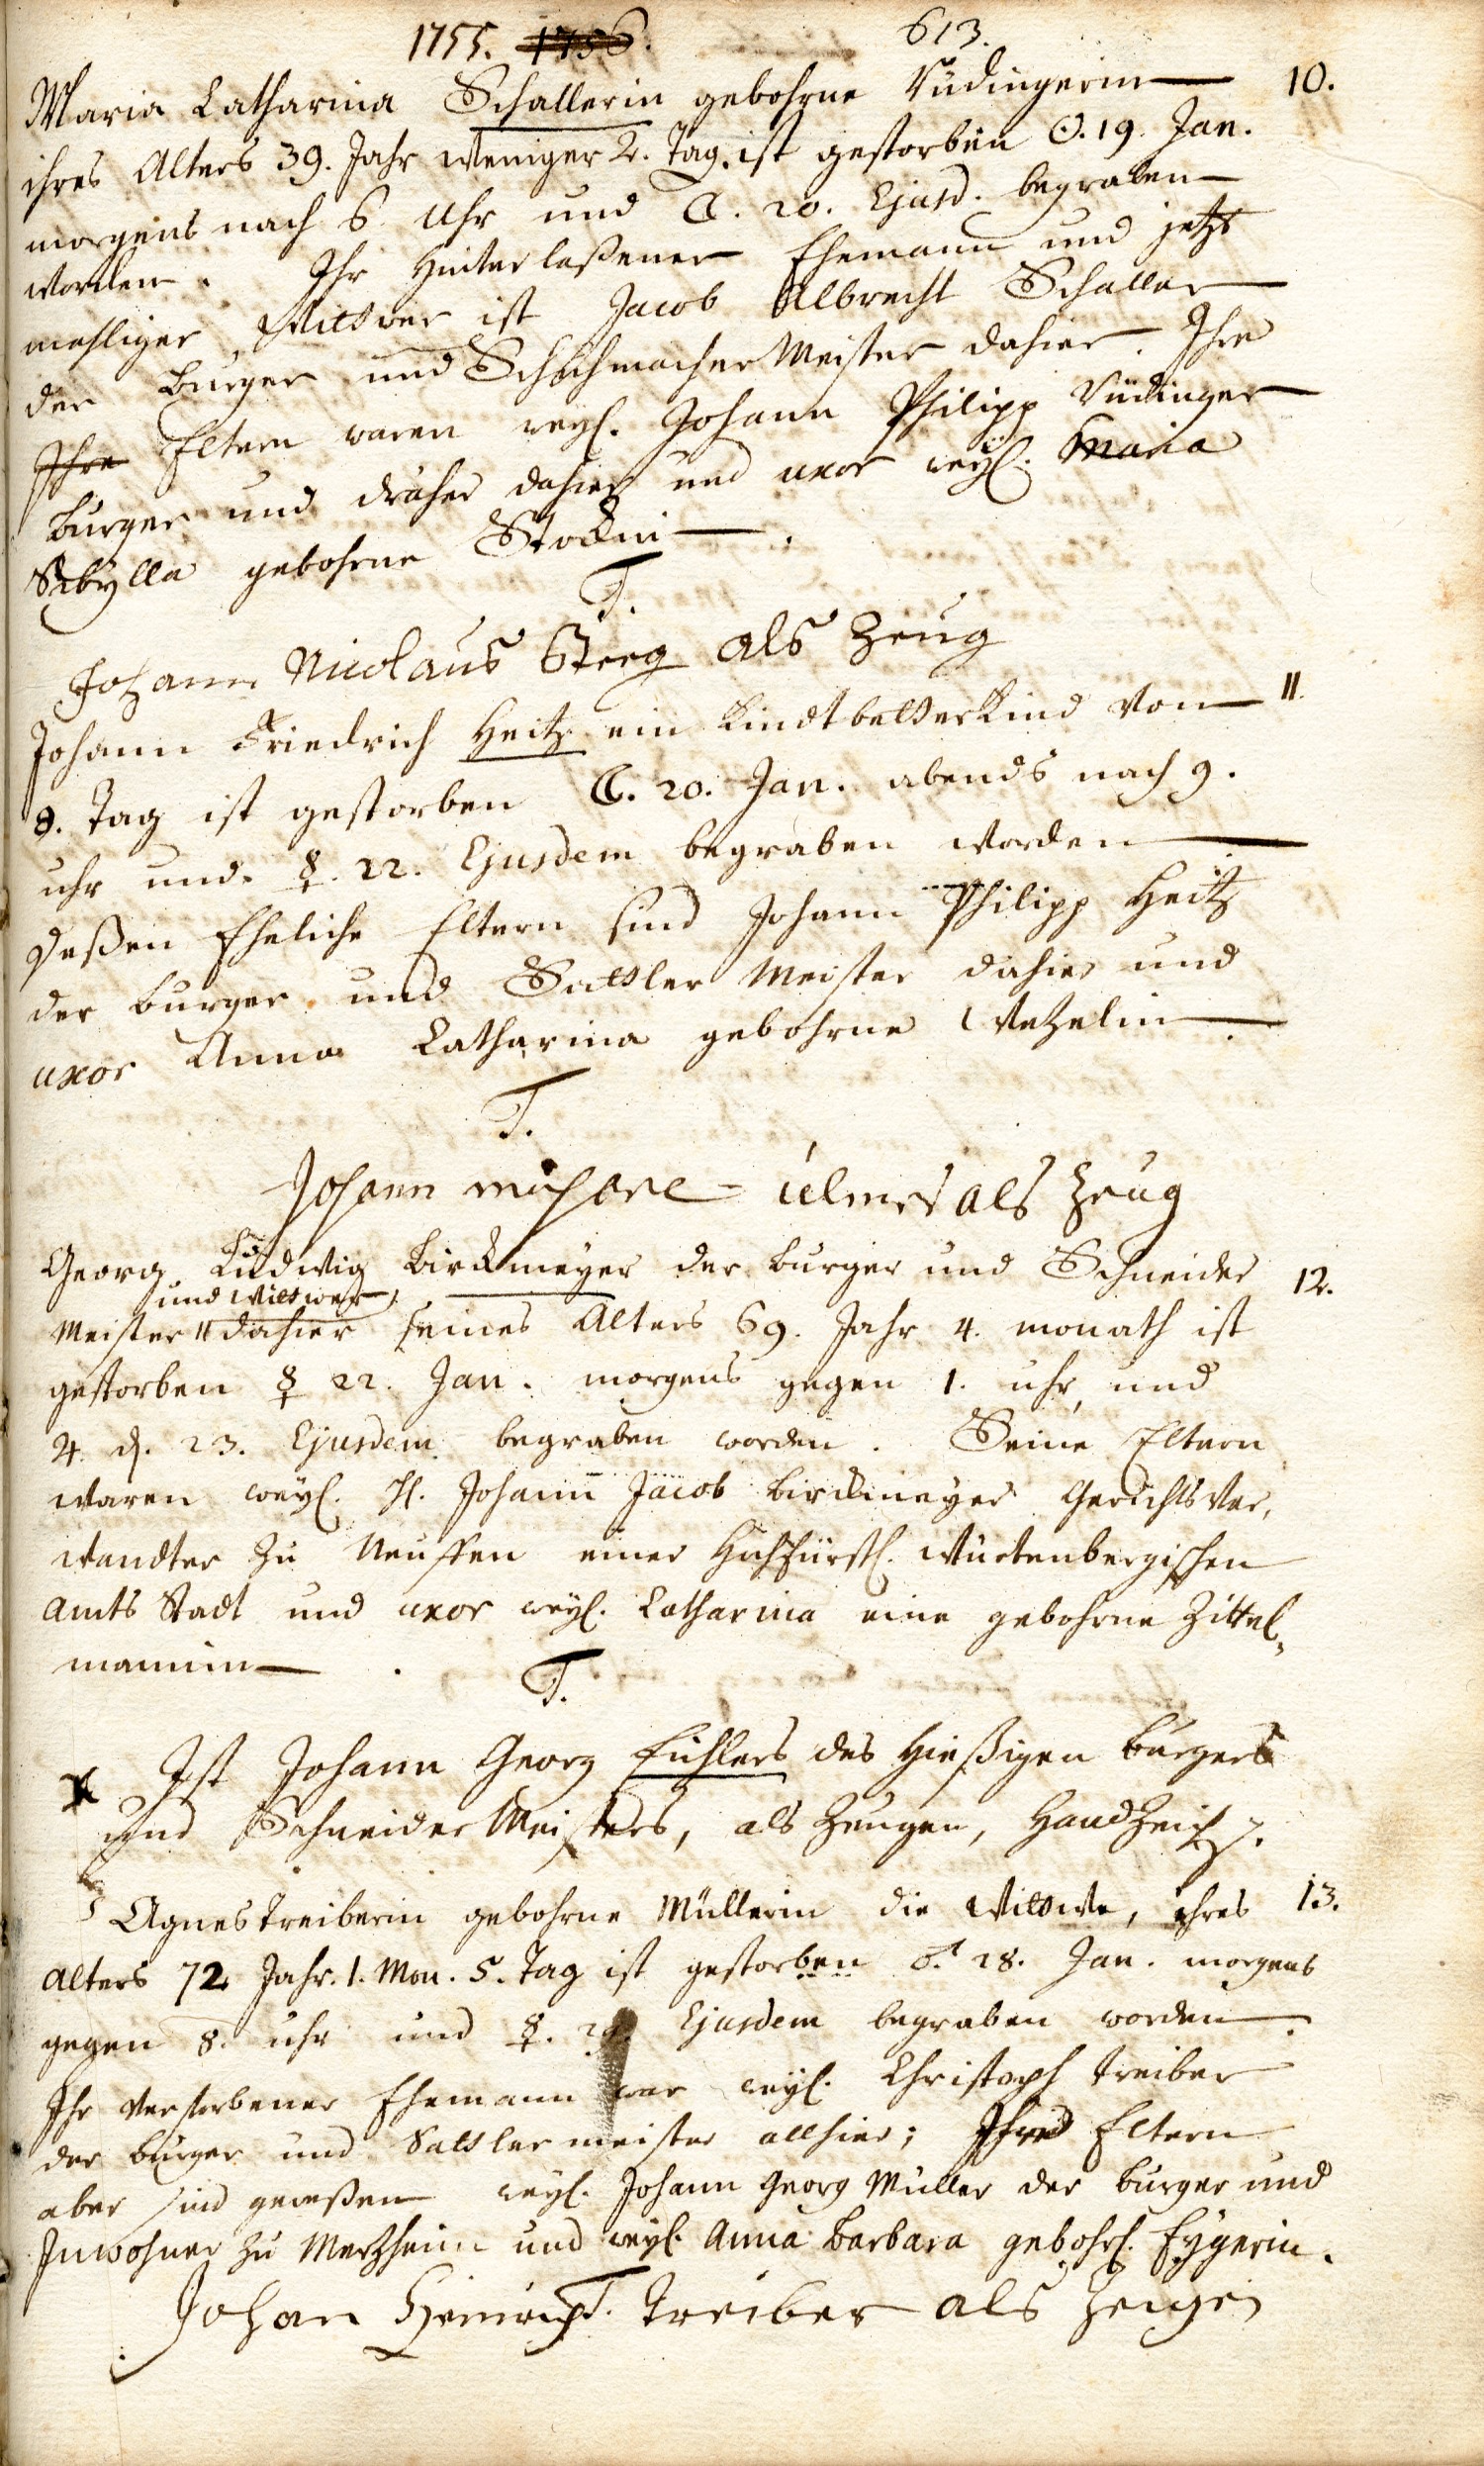 1755. 1756. 613.
Maria Catharina Schallerin gebohrne Rüdingerin 10.
ihres Alters 39. Jahr weniger 2. Tag. ist gestorben ☉. 19. Jan.
morgens nach 6. Uhr und ☾. 20. Ejusd. begraben
worden. Ihr Hinterlaßener Ehemann und jetzt
mahliger Wittwer ist Jacob Albrecht Schaller
der Burger und Schuhmacher Meister dahier. Ihre
Ihre Eltern waren weyl. Johann Philipp Rüdinger
Burger und dräher dahier und uxor weyl. Maria
Sibylla gebohrne Stockin.
T.
Johann Nicolaus Steeg als Zeug
Johann Friedrich Heitz ein Kindtbetterkind von 11.
8. Tag ist gestorben ☾. 20. Jan. abends nach 9.
uhr und ☿. 22. Ejusdem begraben worden
deßen Eheliche Eltern sind Johann Philipp Heitz
der burger und Sattler Meister dahier und
uxor Anna Catharina gebohrne Wezelin.
T.
Johann michael Ulmer als Zeug
Georg Ludwig Birckmeyer der burger und Schneider 12.
und Wittwer,
Meister dahier seines Alters 69. Jahr 4. monath ist
gestorben ☿ 22. Jan. morgens gegen 1. uhr, und
♃ d. 23. Ejusdem begraben worden. Seine Eltern
waren weyl. H. Johann Jacob Birckmeyer Gerichts Ver,
wandter zu Neuffen einer Hochfürstl. Würtenbergischen
Amts Stadt und uxor weyl. Catharina eine gebohrne Zittel,
mannin.
T.
x Ist Johann Georg Eichlers des hießigen burgers
und Schneider Meisters, als Zeugen, Handzeich.
Agnes Treiberin gebohrne Müllerin die Wittwe, ihres 13.
Alters 72. Jahr. 1. Mon. 5. Tag ist gestorben ♂. 28. Jan. morgens
gegen 8. uhr und ☿. 29. Ejusdem begraben worden.
Ihr verstorbener Ehemann war weyl. Christoph Treiber
der burger und Sattlermeister allhier; Ihre Eltern
aber sind geweßen weyl. Johann Georg Müller der burger und
Inwohner zu Merzheim und weyl. Anna Barbara gebohrl. Eygerin.
Johan Heinrich T. Treiber als Zeugen